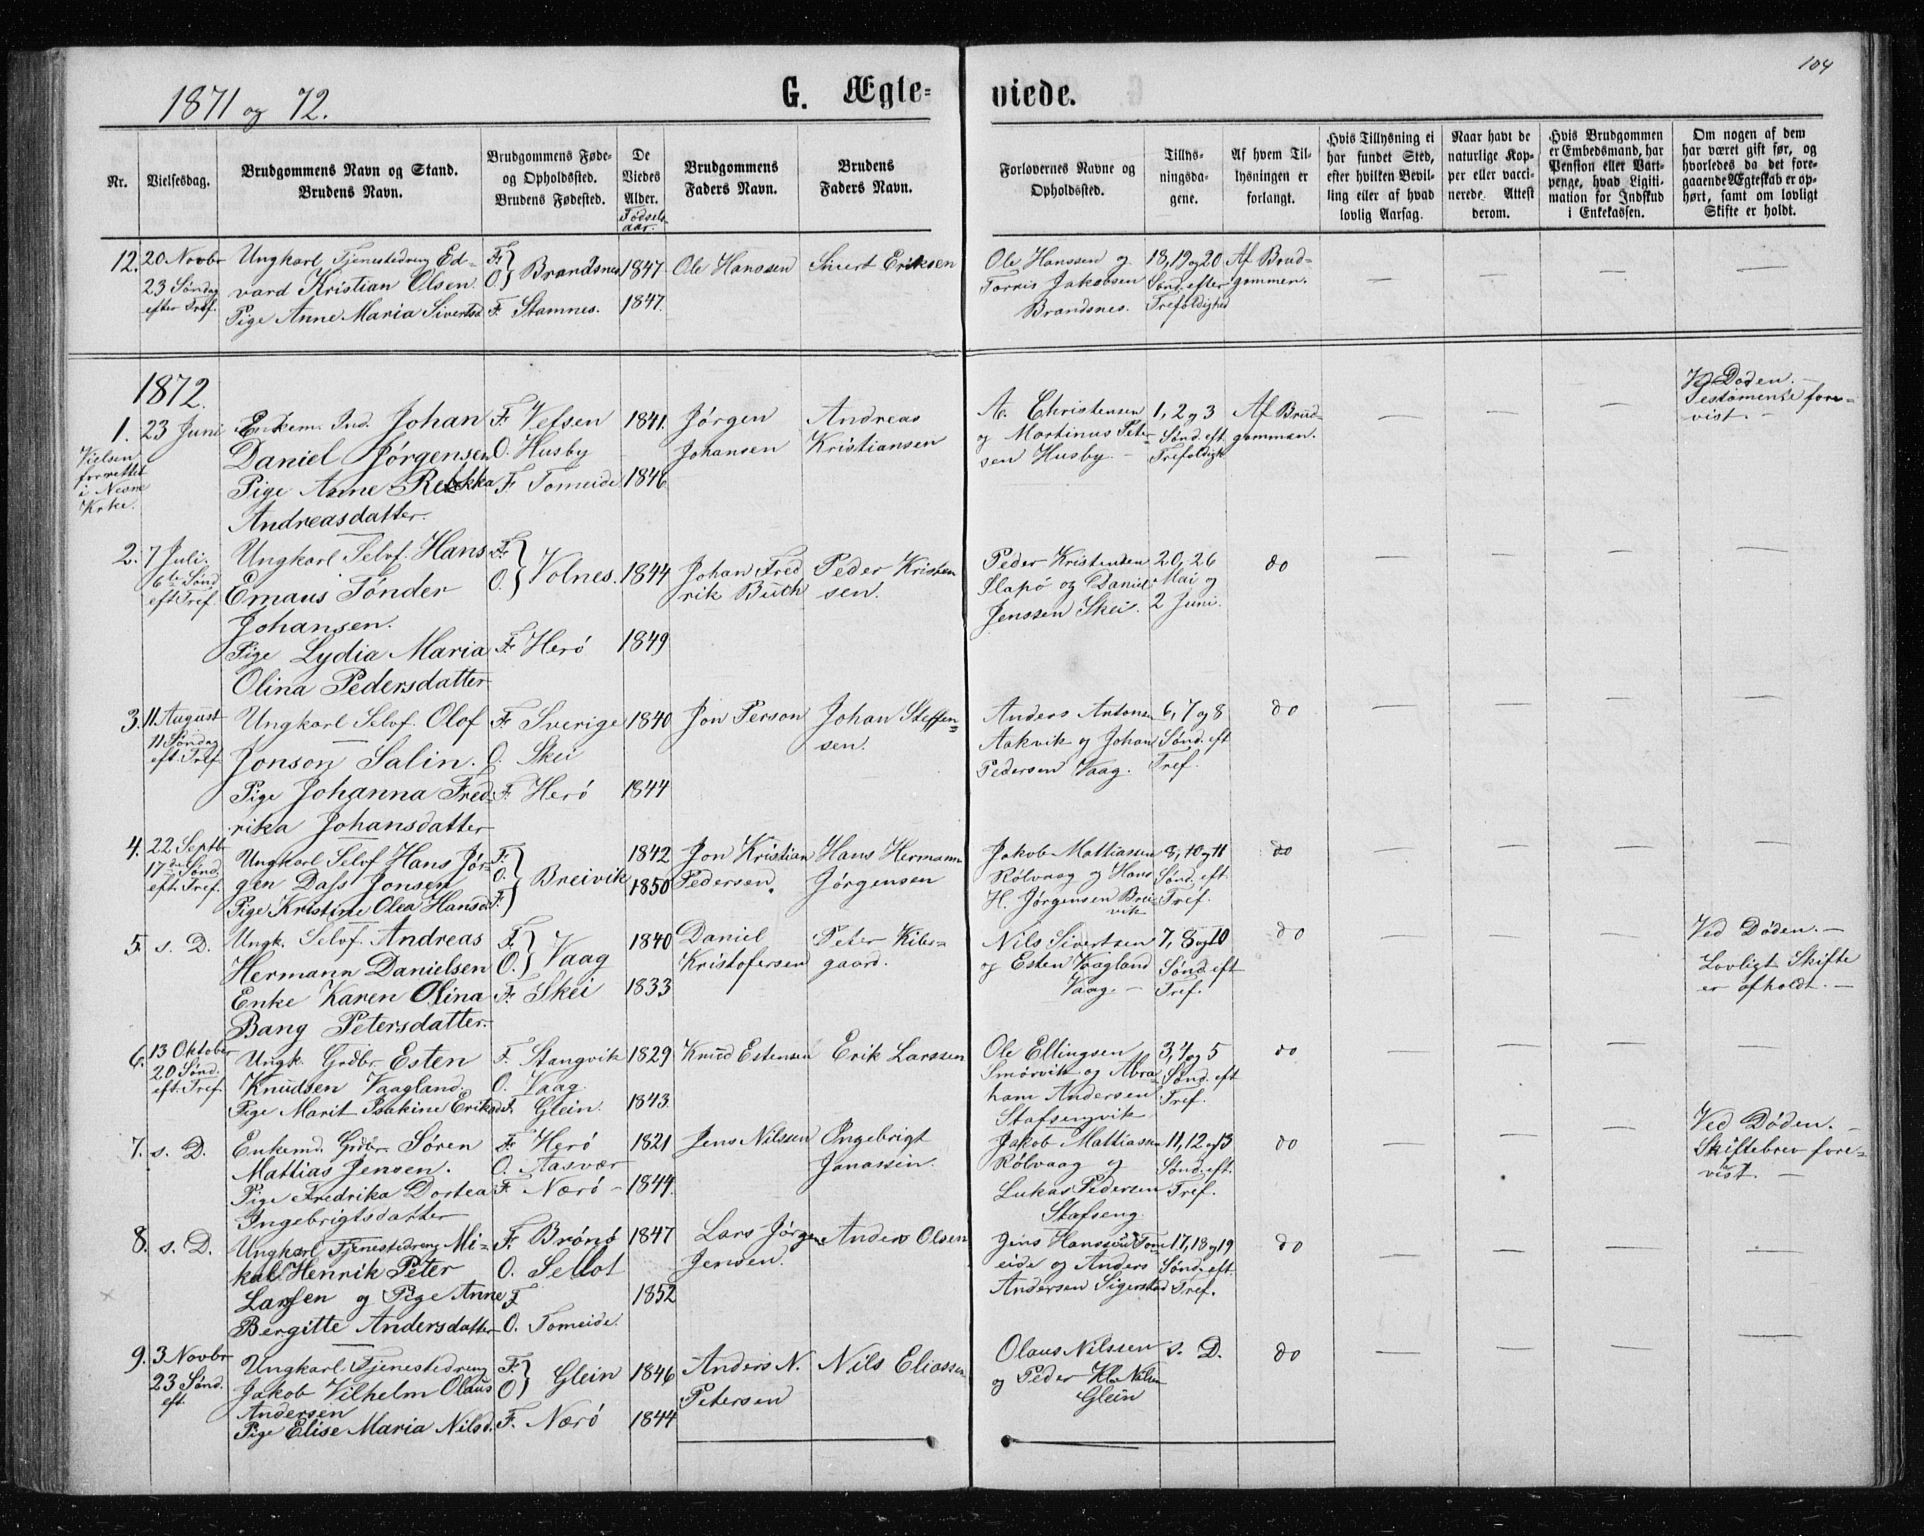 104
1871 og 72.
G. Ægte- viede.
Nr.
Vielsesdag.
Brudgommens Navn og Stand.
Brudens Navn.
Brudgommens Føde-
og Opholdsted.
Brudens Fødested.
De
Viedes
Alder.
Fødsels
aar.
Brudgommens
Faders Navn.
Brudens
Faders Navn.
Forlovernes Navne og
Opholdsted.
Tillys-
ningsda-
gene.
Af hvem Til-
lysningen er
forlangt.
Hvis Tillysning ei
har fundet Sted,
efter hvilken Bevil-
ling eller af hvad
lovlig Aarsag.
Naar havt de
naturlige Kop-
per eller vacci-
nerede. Attest
derom.
Hvis Brudgommen
er Embedsmand, har
Pension eller Vart-
penge, hvad Ligiti-
mation for Indskud
i Enkekassen.
Om nogen af dem
har været gift før, og
hvorledes da det fore-
gaaende Ægteskab er op-
hørt, samt om lovligt
Skifte er holdt.
12. 20 Novbr Ungkarl Tjenestedreng Ed- F. O. Brandsnes 1847 Ole Hanssen Sivert Eriksen Ole Hanssen og 18, 19 og 20 Af Brud-
23 Søndag vard Kristian Olsen. Torris Jakobsen Sønd. efter gommen.
efter Tref. Pige Anne Maria Sivertsd F. Stamnes. 1847. Brandsnes. Trefoldighed
1872.
Ved Døden. —
1. 23 Juni Enkem. Ind. Johan F. Vefsen 1841. Jørgen Andreas A. Christensen 1, 2 og 3 Af Brud- Testamente fore-
Vielsen Daniel Jørgensen O. Husby Johansen Kristiansen og Martinus Peter- Sønd. eft gommen. vist —
forrettet Pige Anne Rebekka F. Tomeide 1846 sen Husby. — Trefoldigh
i Nesne Andreasdatter.
Kirke.
2. 7 Juli. Ungkarl Selvf. Hans F. O. Volnes. 1844 Johan Fred Peder Kristen Peder Kristensen 20, 26 do
6te Sønd Emaus Tønder rik Buch sen. Slapø og Daniel Mai og
eft Tref. Johansen. Jenssen Skei. 2 Juni.
Pige Lydia Maria F. Herø 1849
Olina Pedersdatter
3. 11 August Ungkarl Selvf. Olof F. Sverige 1840 Jon Person Johan Steffen- Anders Antonsen 6, 7 og 8 do
11 Søndag Jonson Salin. O. Skei sen. Aakvik og Johan Sønd. eft
eft. Tref Pige Johanna Fred- F. Herø 1844 Pedersen Vaag. Tref.
rika Johansdatter
4. 22 Septb Ungkarl Selvf Hans Jør- F. O. Breivik 1842 Jon Kristian Hans Hermann Jakob Mattiassen 8, 10 og 11 do
17de Sønd gen Dass Jonsen 1850 Pedersen. Jørgensen Rølvaag og Hans Sønd. eft
eft. Tref. Pige Kristine Olea Hansd F. H. Jørgensen Brei- Tref.
vik
5. s. D. Ungk. Selvf. Andreas F. O. Vaag 1840 Daniel Peter Kibs- Nils Sivertsen 7, 8 og 10 do Ved Døden. —
Hermann Danielsen Kristofersen gaard. og Esten Vaagland Sønd. eft Lovligt Skifte
Enke Karen Olina F. Skei 1833 Vaag. — Tref. er afholdt. —
Bang Petersdatter.
6. 13 Oktober Ungk. Grdbr Esten F. Stangvik 1829 Knud Estensen Erik Larssen Ole Ellingsen 3, 4 og 5 do
20 Sønd. Knudsen Vaagland O. Vaag Smørvik og Abra- Sønd. eft
eft. Tref Pige Marit Erikad F. Glein. 1843. ham Andersen Tref.
Stafsengvik
7. s. D. Enkemd. Grdbr. Søren F. Herø 1821 Jens Nilssen Ingebrigt Jakob Mattiassen 11, 12 og 13 do Ved Døden. —
Mattias Jensen. O. Aasvær Janassin. Rølvaag og Sønd. eft. Skiftebrev fore-
Pige Fredrika Dortea F. Nærø — 1844. Lukas Pedersen Tref. vist —
Ingebrigtsdatter Stafseng.
8. s. D. Ungkarl Tjenestedreng Mi- F. Brønø 1847 Lars Jørgen Anders Olsen Jens Hanssen Tom- 17, 18 og 19 do
kal Henrik Peter O. Sellot Jensen. eide og Anders Sønd. eft
Larssen og Pige Anne F. 1852 Andersen Sigerstad Tref.
Bergitte Andersdatter O. Tomeide.
9. 3 Novbr Ungkarl Tjenestedreng F. O. Glein 1846 Anders N. Nils Eliassen Olaus Nilssen s. D. do
23 Sønd. Jakob Vilhelm Olaus Petersen og Peder Kl. Nilsen
eft. Andersen Glein
Pige Elise Maria Nilsd. F. Nærø 1844